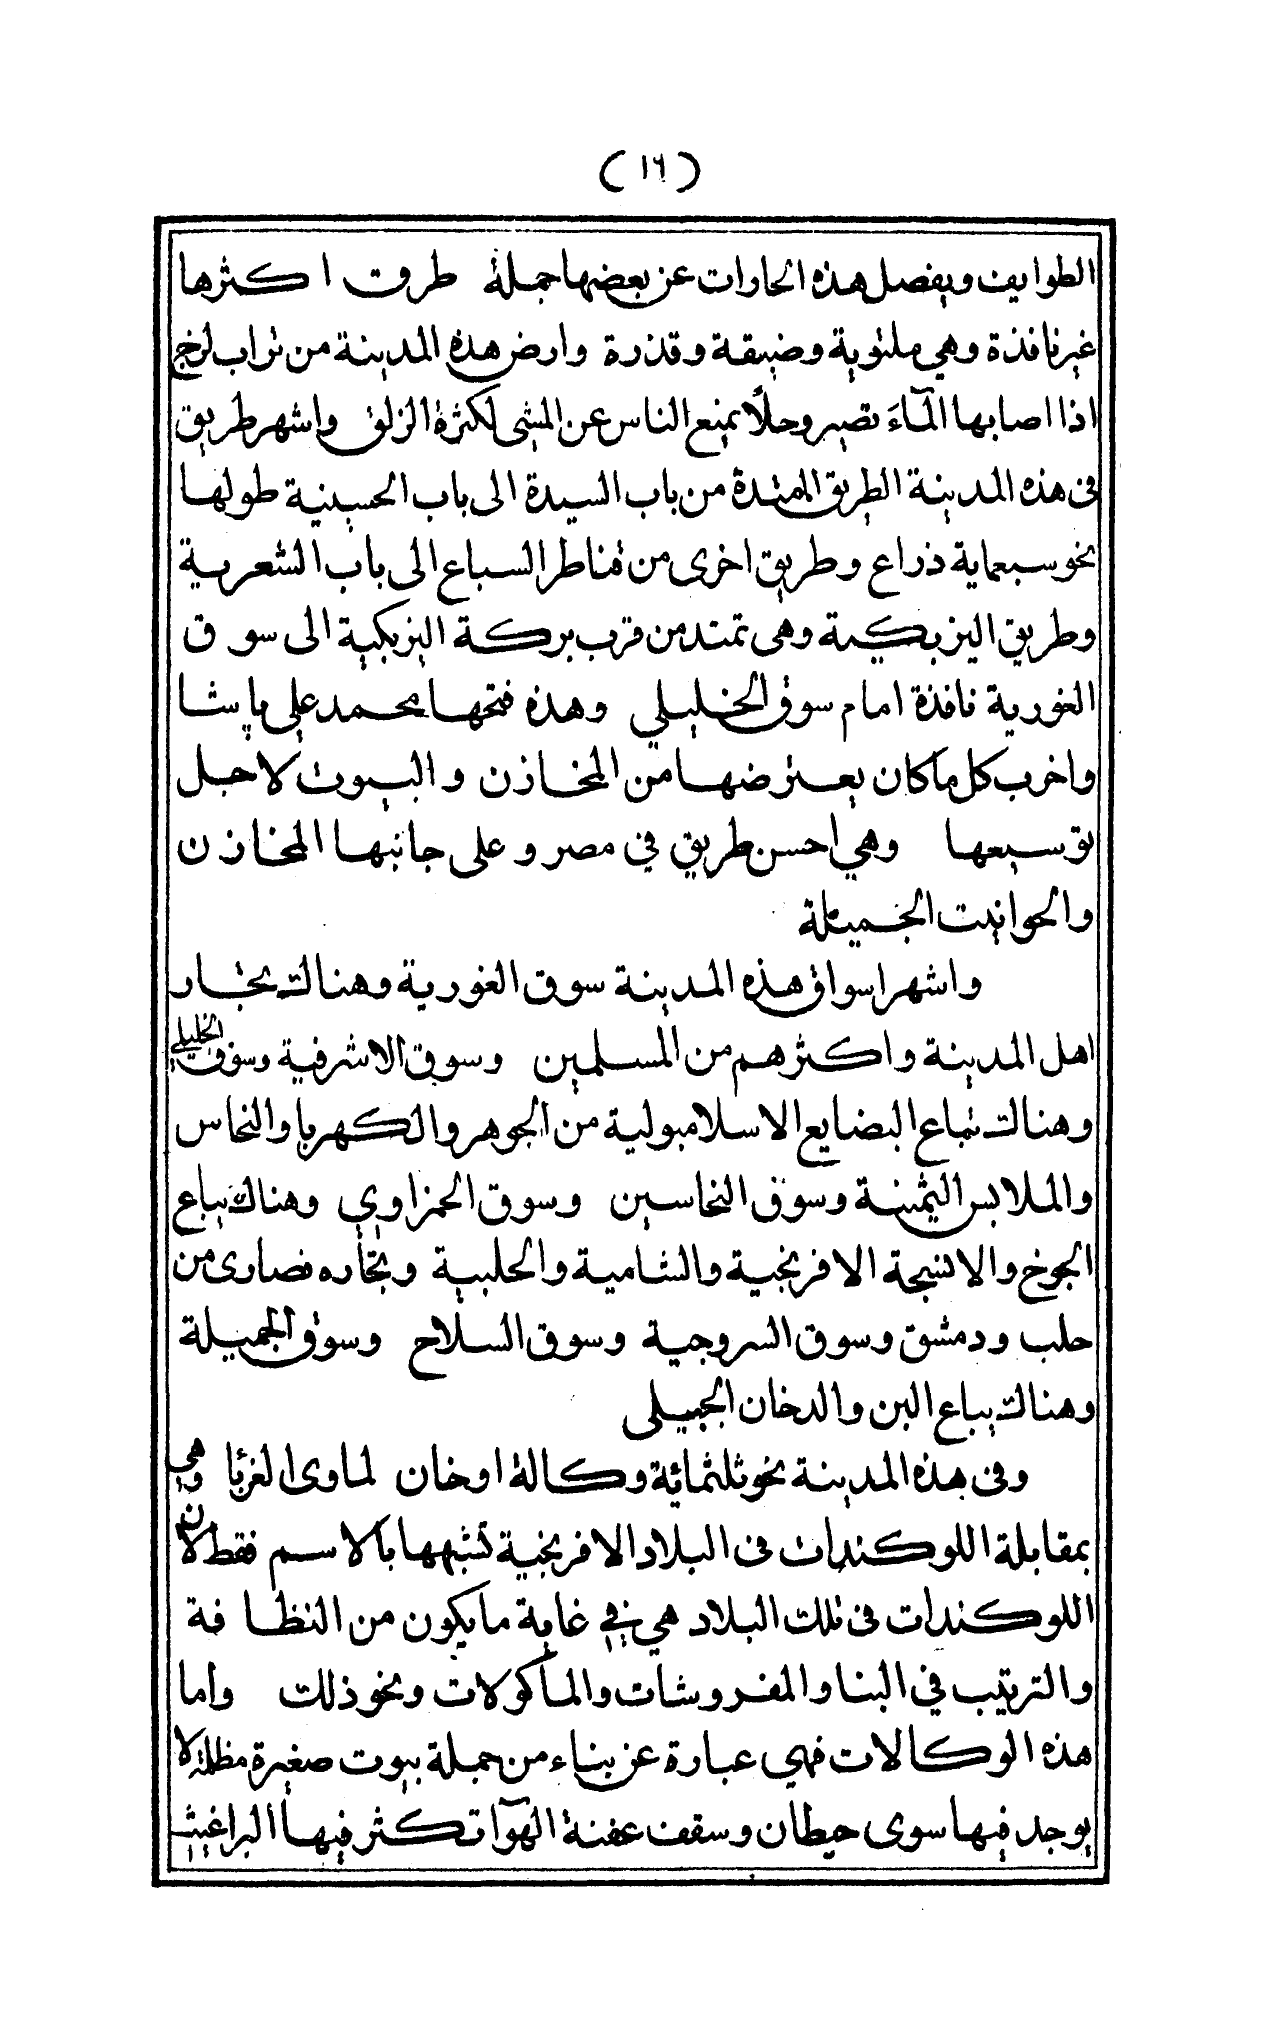 (١٦)
الطوايف ويفصل هذه الحارات عن بعضها جملة طرق اكثرها
غير نافذة وهي ملتوية وضيقة وقذرة وارض هذه المدينة من تراب لزج
اذا اصابها المآء تصير وحلاً يمنع الناس عن المشى لكثرة الزلق واشهر طريق
فى هذه المدينة الطريق الممتدة من باب السيدة الى باب الحسينية طولها
نحو سبعماية ذراع وطريق اخرى من قناطر السباع الى باب الشعرية
وطريق اليزبكية وهى تمتد من قرب بركة اليزبكية الى سوق
الغورية نافذة امام سوق الخليلي وهذه فتحها محمد علي باشا
واخرب كل ما كان يعترضها من المخازن والبيوت لاجل
توسيعها وهي احسن طريق في مصر وعلى جانبها المخازن
والحوانيت الجميلة
واشهر اسواق هذه المدينة سوق الغورية وهناك تجار
اهل المدينة واكثرهم من المسلمين وسوق الاشرفية وسوق الخليلي
وهناك تباع البضايع الاسلامبولية من الجوهر والكهربا والنحاس
والملابس الثمينة وسوق النحاسين وسوق الحمزاوي وهناك يباع
الجوخ والانسجة الافرنجية والشامية والحلبية وتجاره نصارى من
حلب ودمشق وسوق السروجية وسوق السلاح وسوق الجميلة
وهناك يباع البن والدخان الجبيلى
وفى هذه المدينة نحو ثلثمائة وكالة او خان لماوى الغربا وهي
بمقابلة اللوكندات فى البلاد الافرنجية تشبهها بالاسم فقط لان
اللوكندات فى تلك البلاد هي في غاية ما يكون من النظافة
والترتيب في البنا والمفروشات والمأكولات ونحو ذلك واما
هذه الوكالات فهي عبارة عن بناء من جملة بيوت صغيرة مظلمة لا
يوجد فيها سوى حيطان وسقف عفنة الهوآ تكثر فيها البراغيث